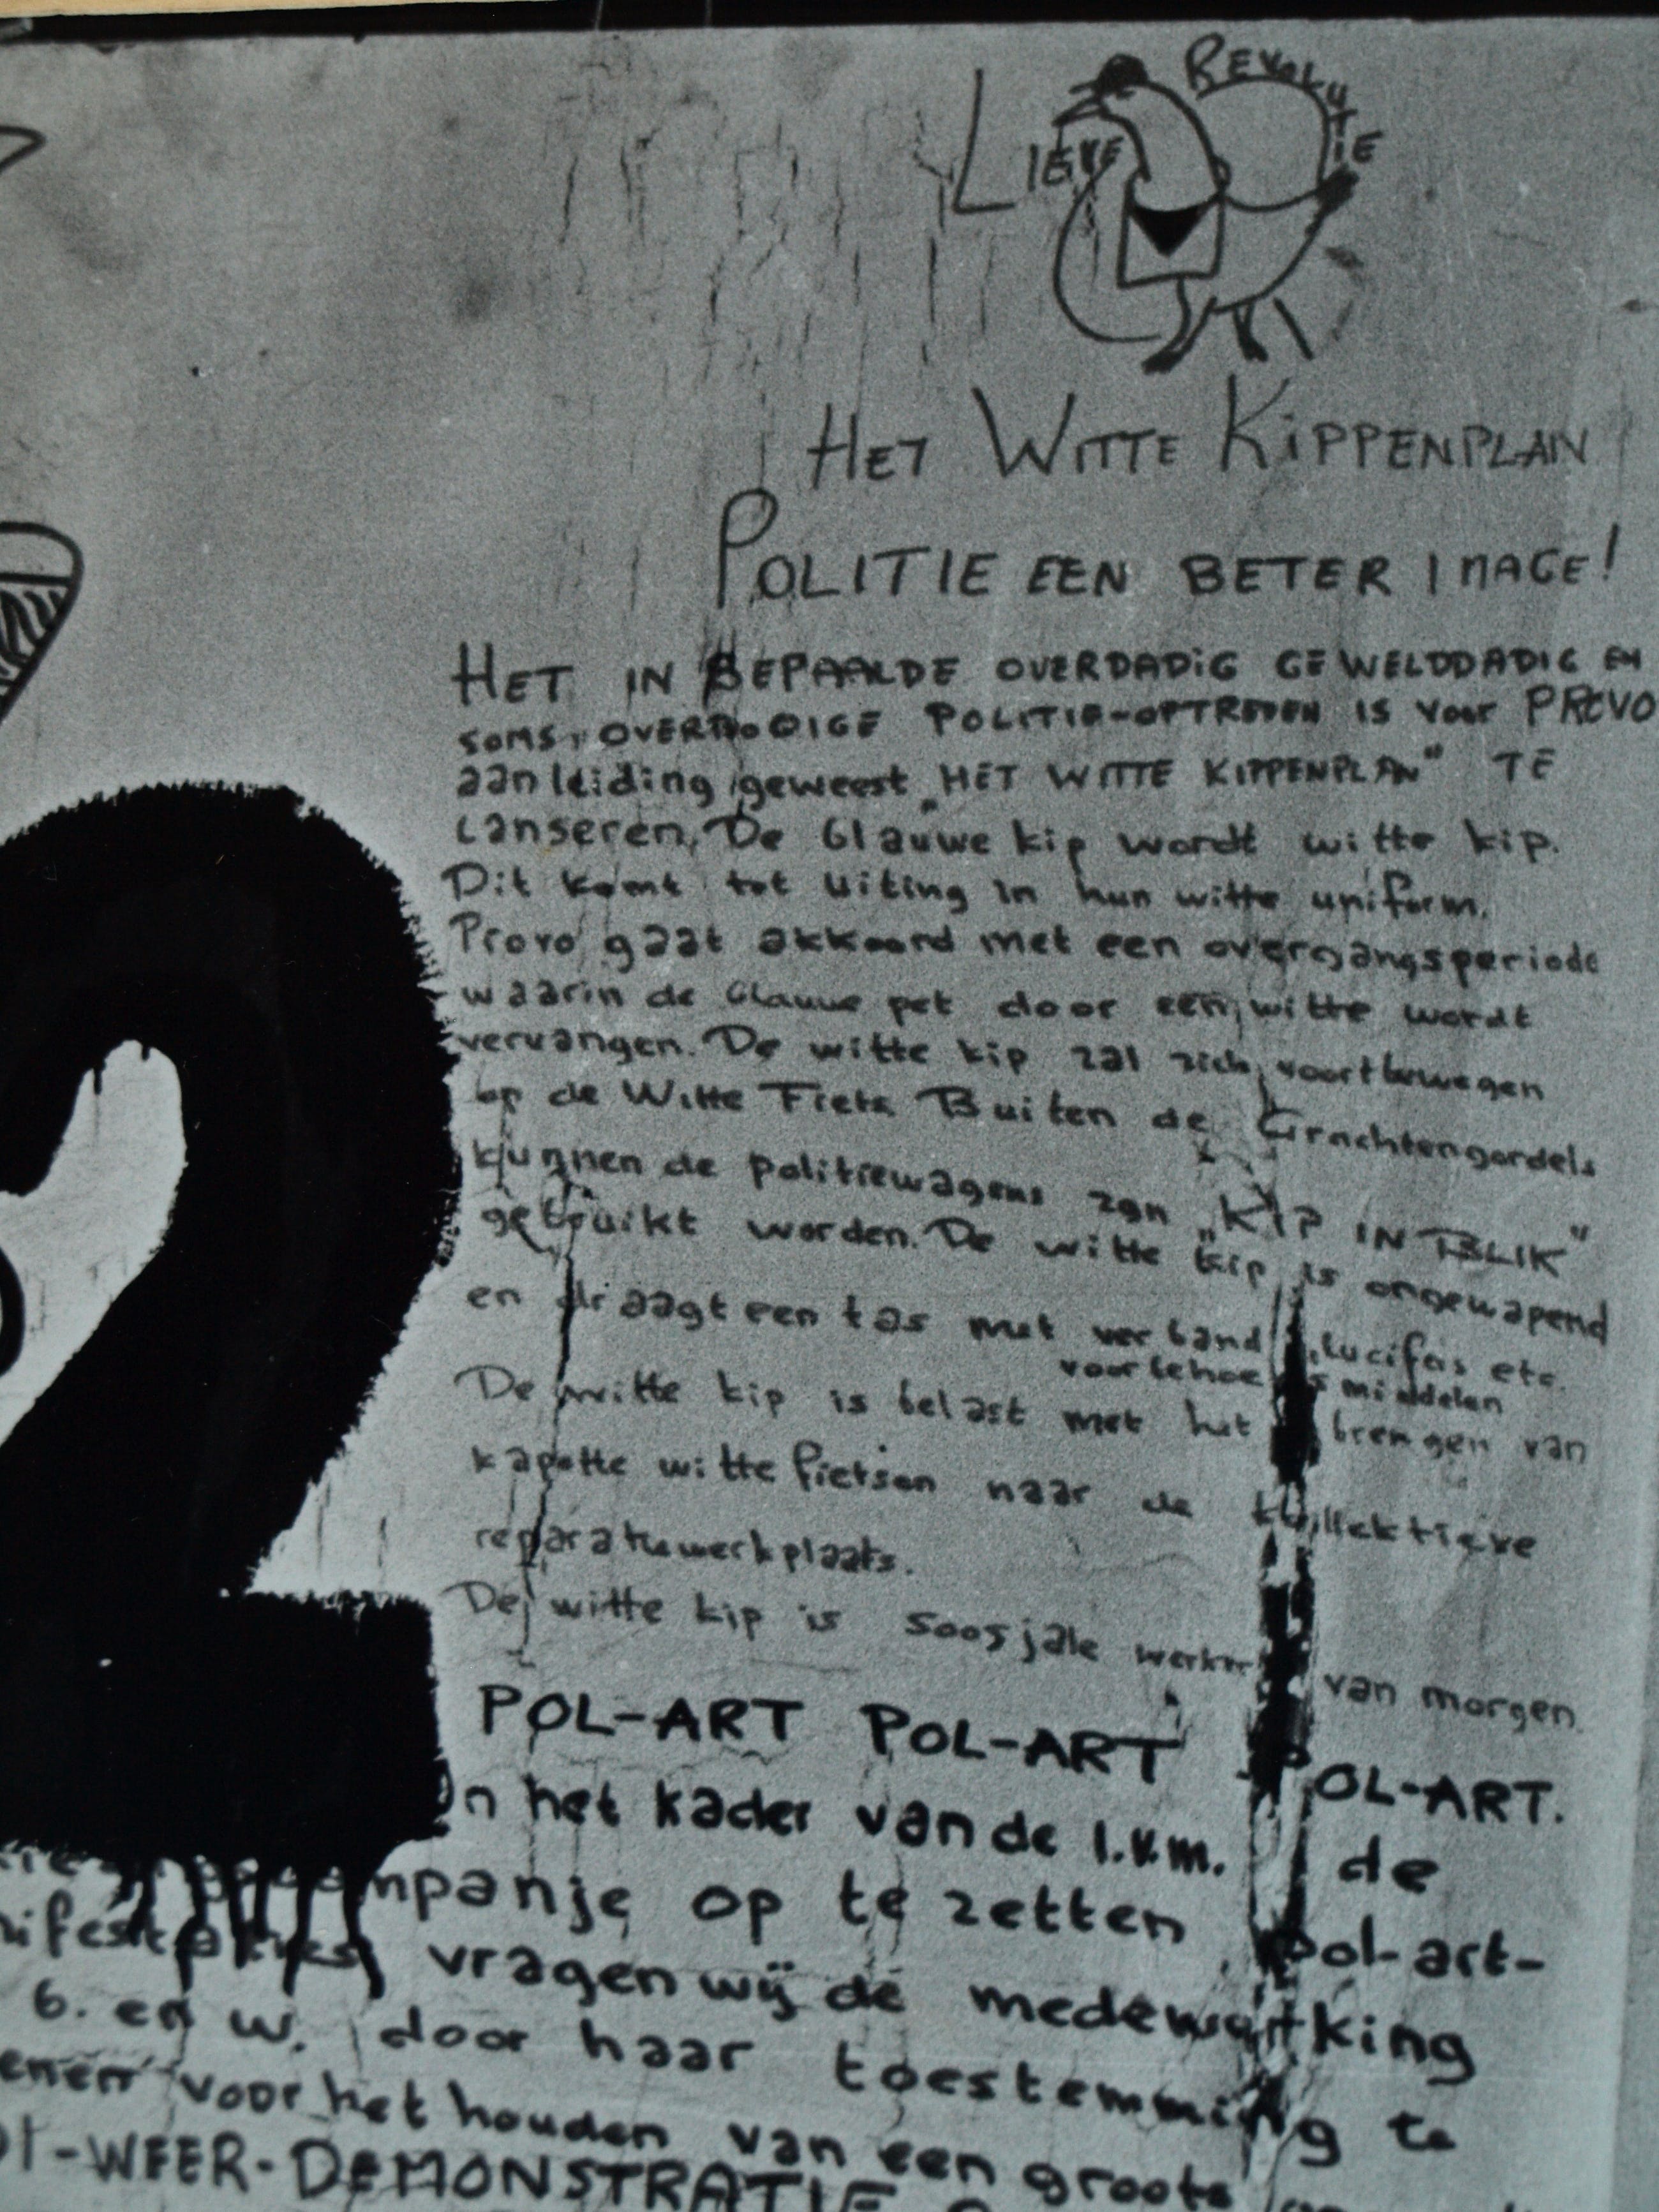 LIEVE REVOLUTIE
HET WITTE KIPPENPLAN
POLITIE EEN BETER IMAGE!
HET IN BEPAALDE OVERDADIG GEWELDDADIG EN
soms, OVERBODIGE POLITIE-OPTREDEN IS voor PROVO
aanleiding geweest „HET WITTE KIPPENPLAN" TE
Lanseren. De blauwe kip wordt witte kip.
Dit komt tot uiting in hun witte uniform.
Provo gaat akkoord met een overgangsperiode
waarin de blauwe pet door een witte wordt
vervangen. De witte kip zal zich voortbewegen
op de Witte Fiets Buiten de Grachtengordels
kunnen de politiewagens zgn „KIP IN BLIK"
gebruikt worden. De witte kip is ongewapend
en draagt een tas met verband, lucifers etc.
voorbehoedsmiddelen
De witte kip is belast met het brengen van
kapotte witte fietsen naar de kollektieve
reparatiewerkplaats.
De witte kip is soosjale werker van morgen.
POL-ART POL-ART POL-ART.
In het kader van de I.V.M. de
kampanje op te zetten pol-art-
vragen wij de medewerking
b. en w. door haar toestemming te
voor het houden van een groots
-WEER-DEMONSTRATIE
2